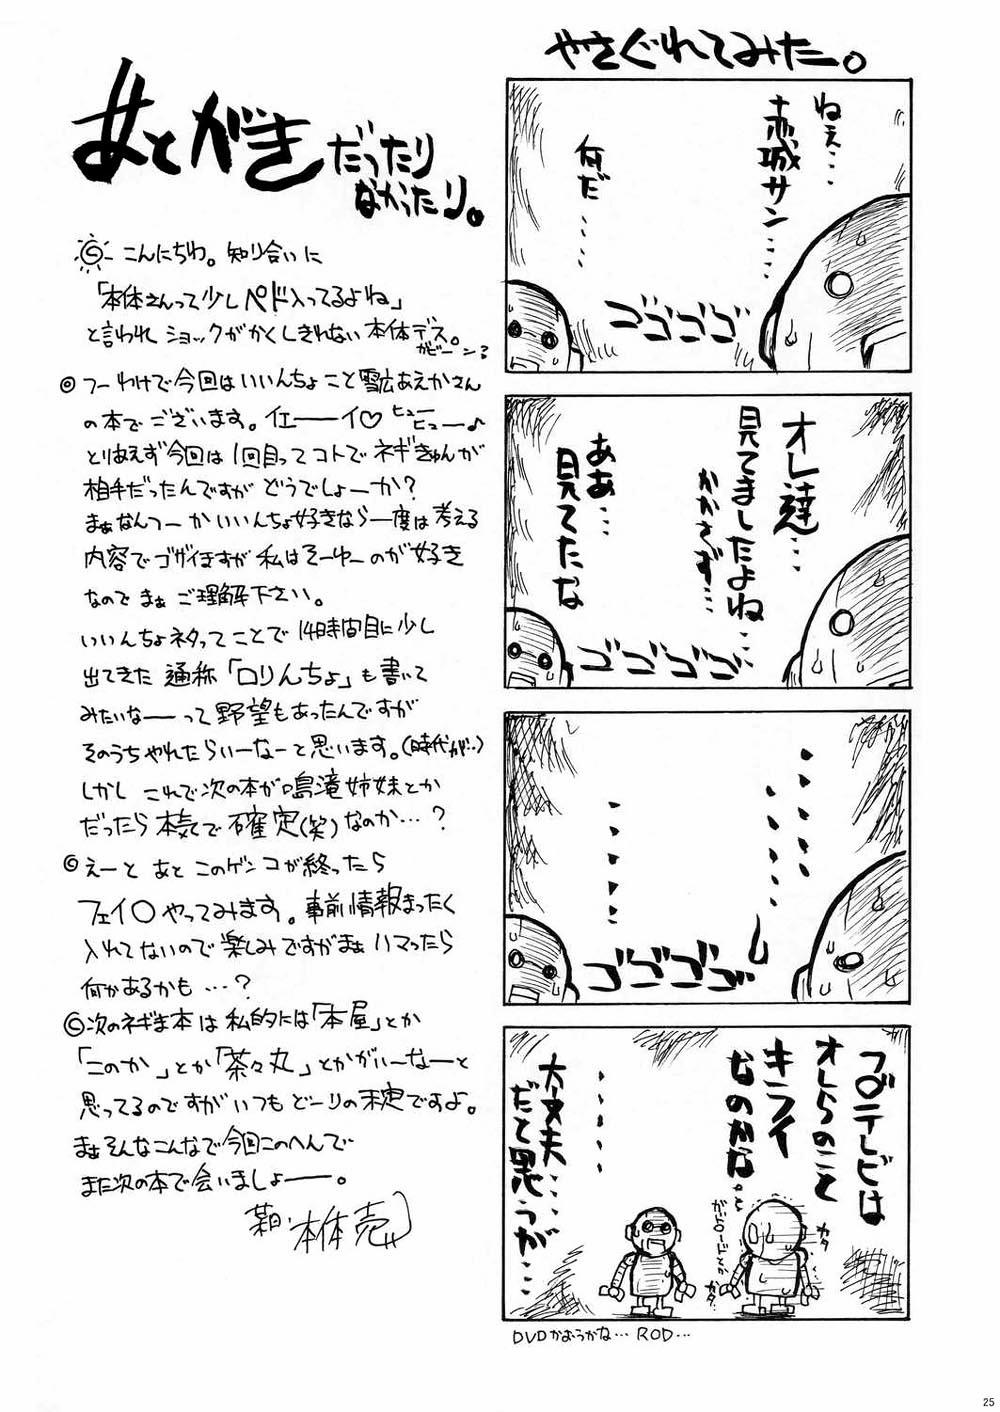 あとがきだったり
なかったり。
こんにちわ。知り合いに
「本体さんって少しペド入ってるよね」
と言われショックがかくしきれない本体デス。
ガビーン
◎つーわけで今回はいいんちょこと雪広あえかさん
の本でございます。イエーーイ♡ヒューヒュー♪
とりあえず今回は1回目ってコトでネギきゅんが
相手だったんですがどうでしょーか?
まぁなんつーかいいんちょ好きなら一度は考える
内容でゴザイますが私はそーゆーのが好き
なのでまぁご理解下さい。
いいんちょネタってことで14時間目に少し
出てきた通称「ロりんちょ」も書いて
みたいなーーって野望もあったんですが
そのうちやれたらいーなーと思います。(時代が‥)
しかしこれで次の本が鳴滝姉妹とか
だったら本気で不確定(笑)なのか…?
◎えーとあとこのゲンコが終ったら
フェイ○やってみます。事前情報まったく
入れてないので楽しみですがまぁハマったら
何かあるかも…?
◎次のネギま本は私的には「本屋」とか
「このか」とか「茶々丸」とかがいーなーと
思ってるのですがいつもどーりの未定ですよ。
まぁそんなこんなで今回このへんで
また次の本で会いましょーー。
本体売
やさぐれてみたー。
ねぇ…
赤城サン……
何だ……
ゴゴゴゴ
オレ達…
見てましたよね…
かかさず…
ああ…
見てたな
ゴゴゴゴ
ゴゴゴゴ
フ○テレビは
オレらのこと
キライ
なのかな。と
大丈夫……
だと思うが…
カタ
カタ
DVDかおうかな… ROD…
25